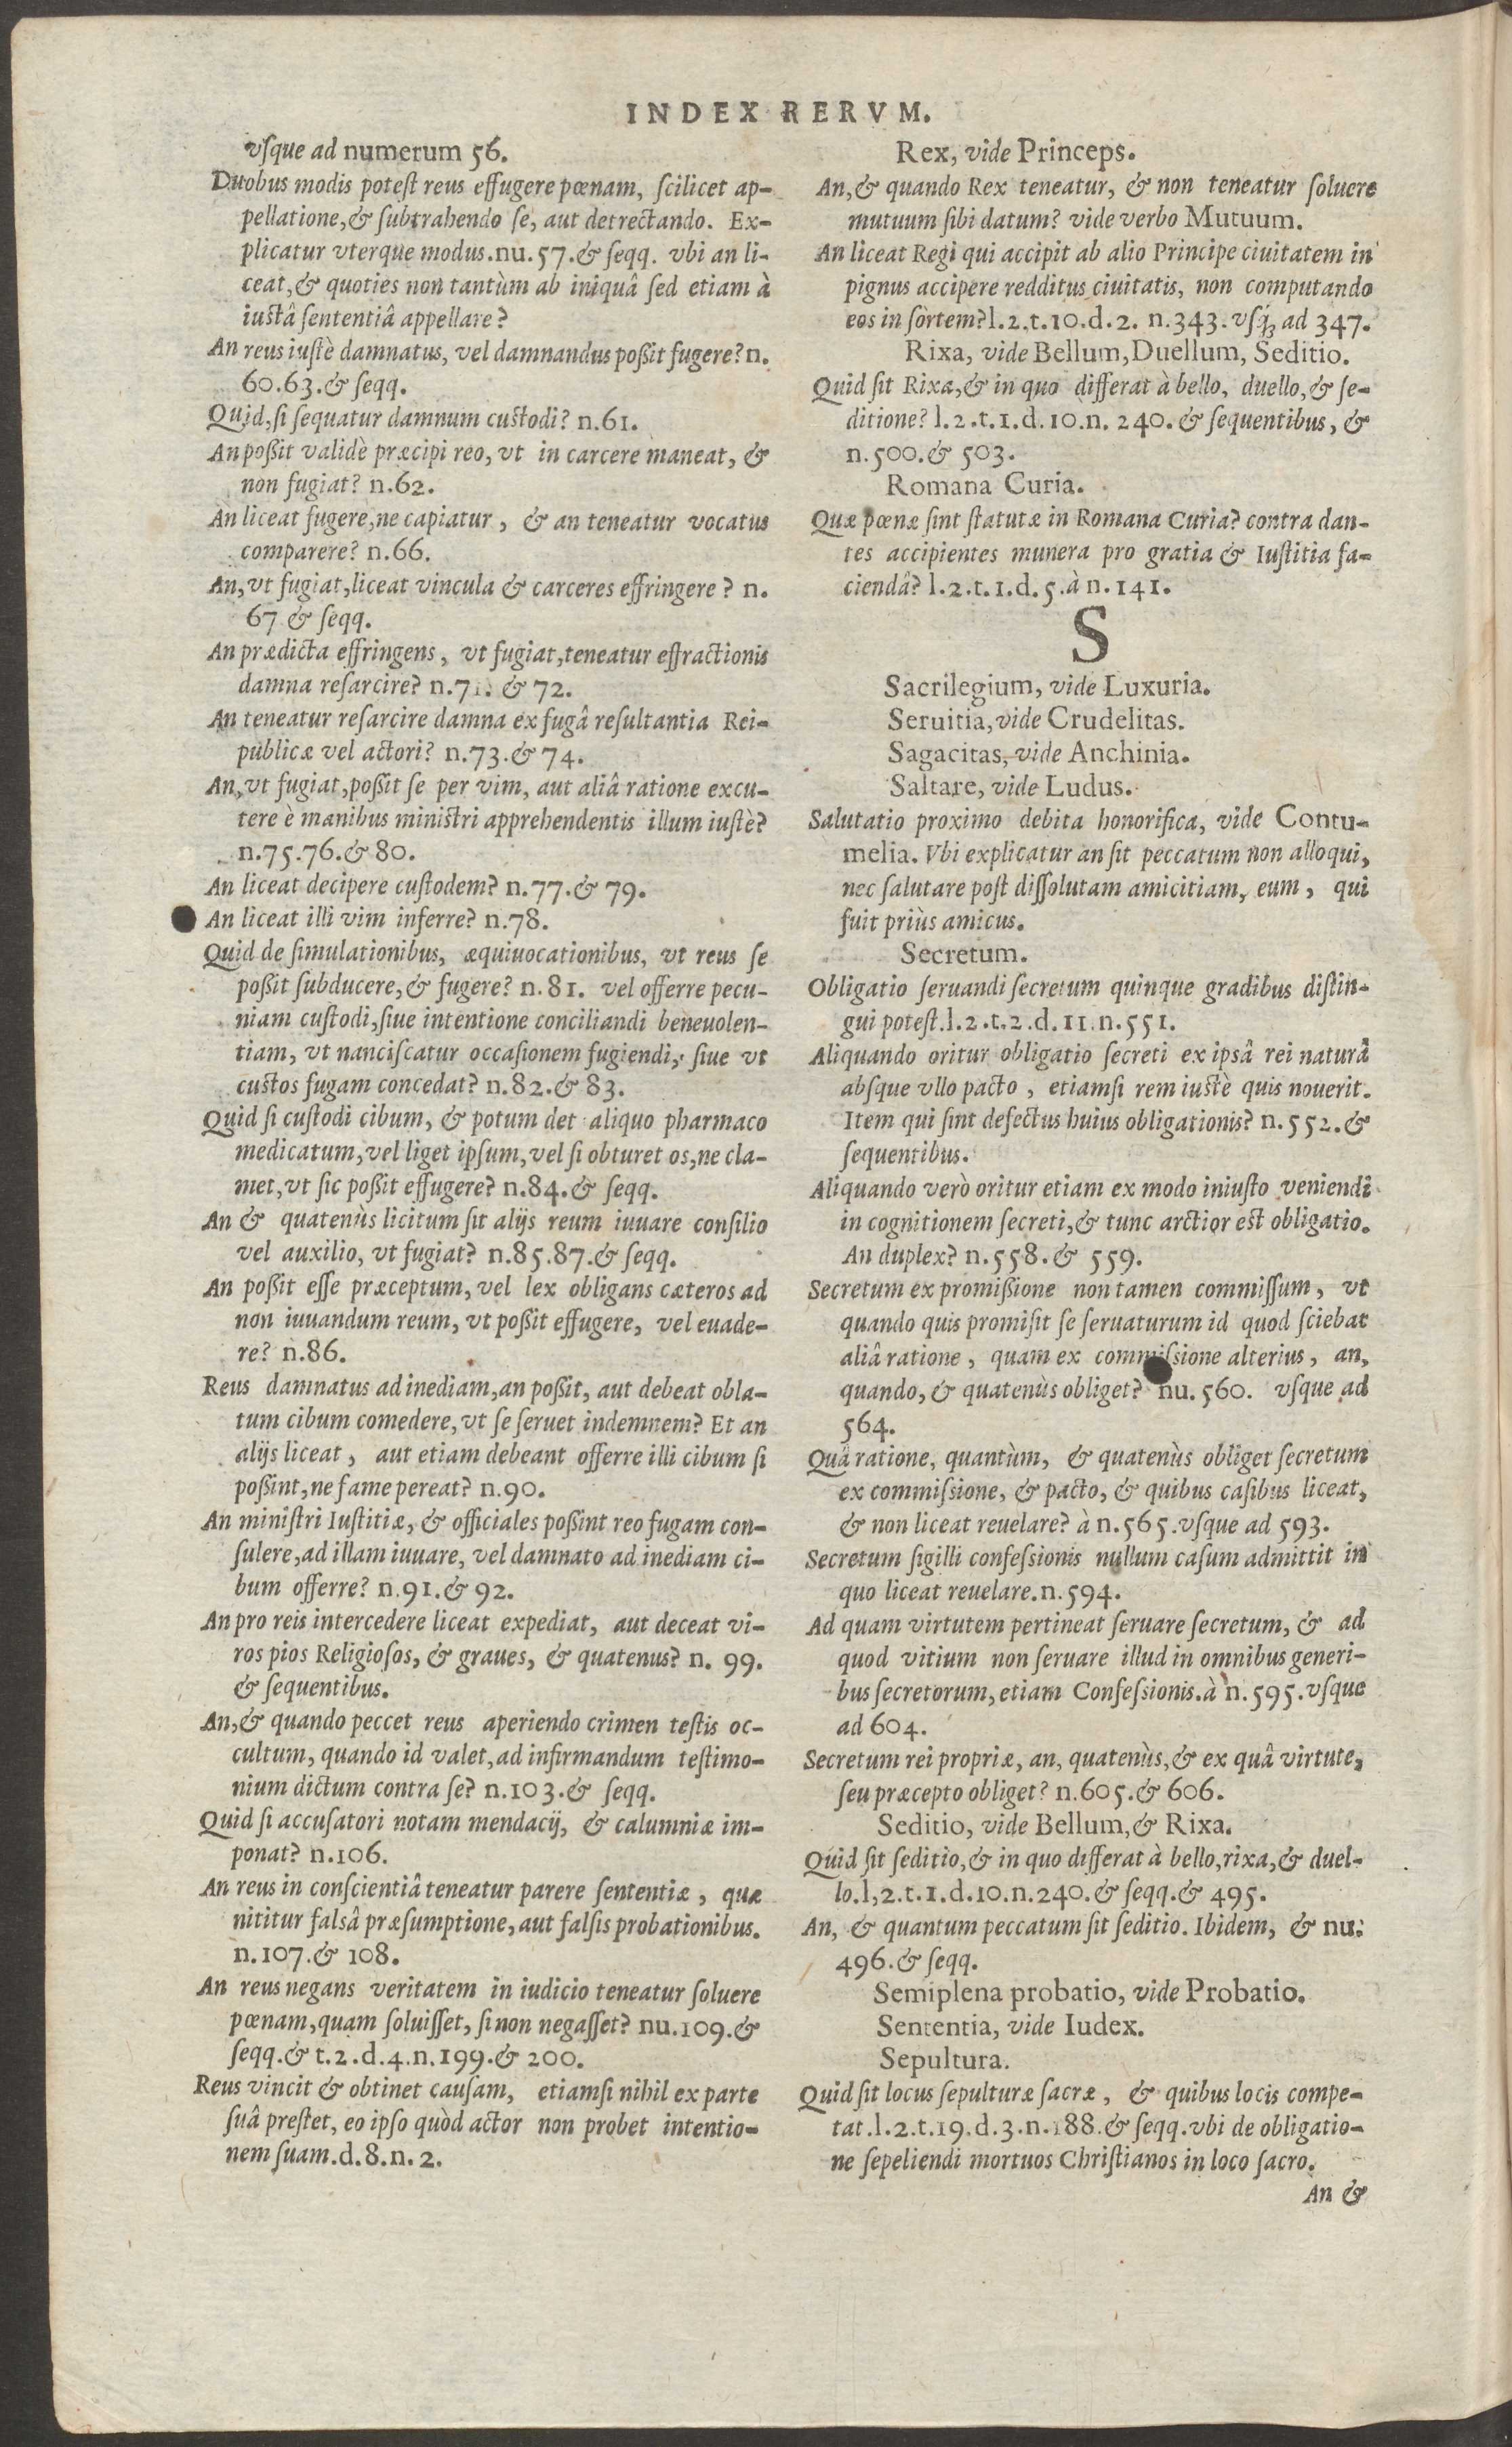 INDEX RERVM.
vſque ad numerum 56.
Duobus modis poteſt reus effugere pœnam, ſcilicet ap-
pellatione, & ſubtrahendo ſe, aut detrectando. Ex-
plicatur vterque modus. nu. 57. & ſeqq. vbi an li-
ceat, & quoties non tantùm ab iniquâ ſed etiam à
iuſtâ ſententiâ appellare?
An reus iuſtè damnatus, vel damnandus poßit fugere? n.
60. 63. & ſeqq.
Quid, ſi ſequatur damnum cuſtodi? n. 61.
An poßit validè præcipi reo, vt in carcere maneat, &
non fugiat? n. 62.
An liceat fugere, ne capiatur, & an teneatur vocatus
comparere? n. 66.
An, vt fugiat, liceat vincula & carceres effringere? n.
67 & ſeqq.
An prædicta effringens, vt fugiat, teneatur effractionis
damna reſarcire? n. 71. & 72.
An teneatur reſarcire damna ex fugâ reſultantia Rei-
publicæ vel actori? n. 73. & 74.
An, vt fugiat, poßit ſe per vim, aut aliâ ratione excu-
tere è manibus miniſtri apprehendentis illum iuſtè?
n. 75. 76. & 80.
An liceat decipere cuſtodem? n. 77. & 79.
An liceat illi vim inferre? n. 78.
Quid de ſimulationibus, æquiuocationibus, vt reus ſe
poßit ſubducere, & fugere? n. 81. vel offerre pecu-
niam cuſtodi, ſiue intentione conciliandi beneuolen-
tiam, vt nanciſcatur occaſionem fugiendi, ſiue vt
cuſtos fugam concedat? n. 82. & 83.
Quid ſi cuſtodi cibum, & potum det aliquo pharmaco
medicatum, vel liget ipſum, vel ſi obturet os, ne cla-
met, vt ſic poßit effugere? n. 84. & ſeqq.
An & quatenùs licitum ſit alijs reum iuuare conſilio
vel auxilio, vt fugiat? n. 85. 87. & ſeqq.
An poßit eſſe præceptum, vel lex obligans cæteros ad
non iuuandum reum, vt poßit effugere, vel euade-
re? n. 86.
Reus damnatus ad inediam, an poßit, aut debeat obla-
tum cibum comedere, vt ſe ſeruet indemnem? Et an
alijs liceat, aut etiam debeant offerre illi cibum ſi
poßint, ne fame pereat? n. 90.
An miniſtri Iuſtitiæ, & officiales poßint reo fugam con-
ſulere, ad illam iuuare, vel damnato ad inediam ci-
bum offerre? n. 91. & 92.
An pro reis intercedere liceat expediat, aut deceat vi-
ros pios Religioſos, & graues, & quatenus? n. 99.
& ſequentibus.
An, & quando peccet reus aperiendo crimen teſtis oc-
cultum, quando id valet, ad infirmandum teſtimo-
nium dictum contra ſe? n. 103. & ſeqq.
Quid ſi accuſatori notam mendacij, & calumniæ im-
ponat? n. 106.
An reus in conſcientiâ teneatur parere ſententiæ, quæ
nititur falsâ præſumptione, aut falſis probationibus.
n. 107. & 108.
An reus negans veritatem in iudicio teneatur ſoluere
pœnam, quam ſoluiſſet, ſi non negaſſet? nu. 109. &
ſeqq. & t. 2. d. 4. n. 199. & 200.
Reus vincit & obtinet cauſam, etiamſi nihil ex parte
ſuâ preſtet, eo ipſo quòd actor non probet intentio-
nem ſuam. d. 8. n. 2.
Rex, vide Princeps.
An, & quando Rex teneatur, & non teneatur ſoluere
mutuum ſibi datum? vide verbo Mutuum.
An liceat Regi qui accipit ab alio Principe ciuitatem in
pignus accipere redditus ciuitatis, non computando
eos in ſortem? l. 2. t. 10. d. 2. n. 343. vſq́; ad 347.
Rixa, vide Bellum, Duellum, Seditio.
Quid ſit Rixa, & in quo differat à bello, duello, & ſe-
ditione? l. 2. t. 1. d. 10. n. 240. & ſequentibus, &
n. 500. & 503.
Romana Curia.
Quæ pœnæ ſint ſtatutæ in Romana Curia? contra dan-
tes accipientes munera pro gratia & Iuſtitia fa-
ciendâ? l. 2. t. 1. d. 5. à n. 141.
S
Sacrilegium, vide Luxuria.
Seruitia, vide Crudelitas.
Sagacitas, vide Anchinia.
Saltare, vide Ludus.
Salutatio proximo debita honorifica, vide Contu-
melia. Vbi explicatur an ſit peccatum non alloqui,
nec ſalutare poſt diſſolutam amicitiam, eum, qui
fuit priùs amicus.
Secretum.
Obligatio ſeruandi ſecretum quinque gradibus diſtin-
gui poteſt. l. 2. t. 2. d. 11. n. 551.
Aliquando oritur obligatio ſecreti ex ipsâ rei naturâ
abſque vllo pacto, etiamſi rem iuſtè quis nouerit.
Item qui ſint defectus huius obligationis? n. 552. &
ſequentibus.
Aliquando verò oritur etiam ex modo iniuſto veniendi
in cognitionem ſecreti, & tunc arctior eſt obligatio.
An duplex? n. 558. & 559.
Secretum ex promißione non tamen commiſſum, vt
quando quis promiſit ſe ſeruaturum id quod ſciebat
aliâ ratione, quam ex commiſsione alterius, an,
quando, & quatenùs obliget? nu. 560. vſque ad
564.
Quâ ratione, quantùm, & quatenùs obliget ſecretum
ex commiſsione, & pacto, & quibus caſibus liceat,
& non liceat reuelare? à n. 565. vſque ad 593.
Secretum ſigilli confeſsionis nullum caſum admittit in
quo liceat reuelare. n. 594.
Ad quam virtutem pertineat ſeruare ſecretum, & ad
quod vitium non ſeruare illud in omnibus generi-
bus ſecretorum, etiam Confeſsionis. à n. 595. vſque
ad 604.
Secretum rei propriæ, an, quatenùs, & ex quâ virtute,
ſeu præcepto obliget? n. 605. & 606.
Seditio, vide Bellum, & Rixa.
Quid ſit ſeditio, & in quo differat à bello, rixa, & duel-
lo. l, 2. t. 1. d. 10. n. 240. & ſeqq. & 495.
An, & quantum peccatum ſit ſeditio. Ibidem, & nu:
496. & ſeqq.
Semiplena probatio, vide Probatio.
Sententia, vide Iudex.
Sepultura.
Quid ſit locus ſepulturæ ſacræ, & quibus locis compe-
tat. l. 2. t. 19. d. 3. n. 188. & ſeqq. vbi de obligatio-
ne ſepeliendi mortuos Chriſtianos in loco ſacro.
An &